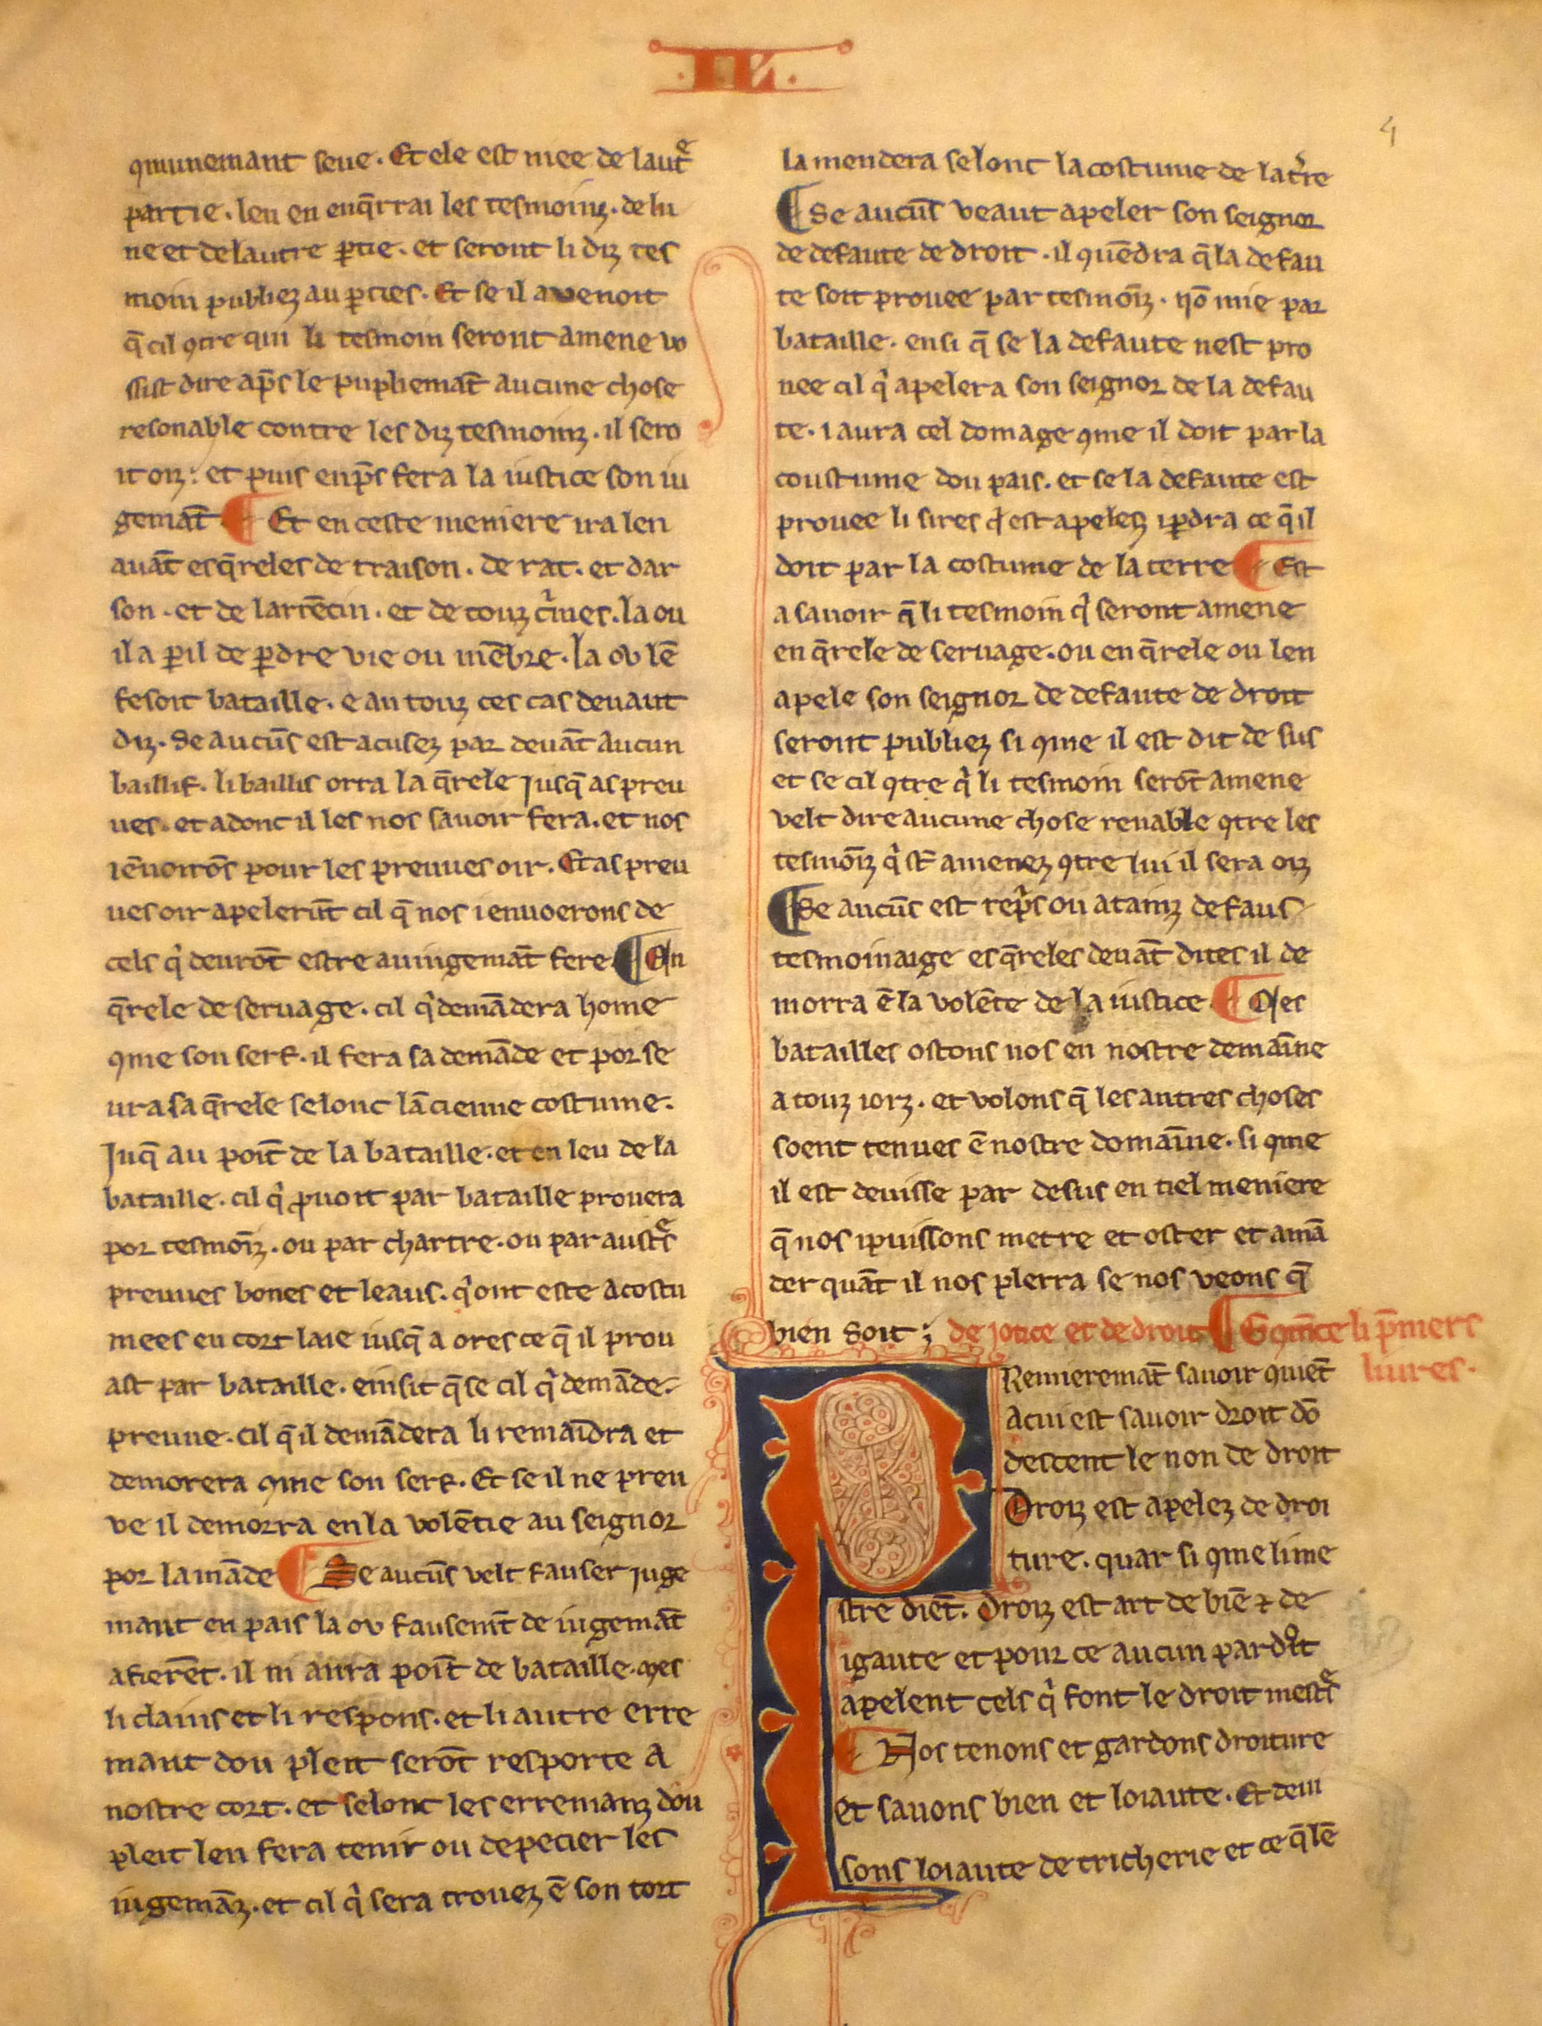 ·IIII·
4
ꝯmunemant seue. Et ele est niee de lautͤ
partie. len en enq̄rrai les tesmoinz. de lu
ne et de lautre ꝑtie. et seront li diz tes
moin publiez au ꝑties. Et se il avenoit
q̄ cil ꝯtre qui li tesmoin seront amene vo
ssist dire ap̄s le pupliemāt aucune chose
resonable contre les diz tesmoinz. il sero
it oiz: et puis enp̄s fera la iustice son iu
gemāt ¶ Et en ceste meniere ira len
auāt es q̄reles de traison. de rat. et dar
son. et de larrēcin. et de touz c̓mes. la ou
il a ꝑil de ꝑdre vie ou mēbre. la ov lē
fesoit bataille. e an touz ces cas deuant
diz. Se aucūs est acusez par deuāt aucun
baillif. li baillis orra la q̄rele jusq̄ as preu
ues. et adonc il les nos sauoir fera. et nos
i ēuoirōs pour les preuues oir. Et as preu
ues oir apelerūt cil q̄ nos i enuoerons de
cels q̓ deurōt estre au iugemāt fere ¶ En
q̄rele de seruage. cil q̓ demādera home
ꝯme son serf. il fera sa demāde et por se
ura sa q̄rele selonc lācienne costume.
Juq̄ au poīt de la bataille. et en leu de la
bataille. cil q̓ ꝓuoit par bataille prouera
por tesmoīz. ou par chartre. ou par autͤs
preuues bones et leaus. q̓ ont este acostu
mees en cort laie iusq̄ a ores ce q̄ il prou
ast par bataille. einsit q̄ se cil q̓ demāde
preuue. cil q̄ il demādera li remaīdra et
demorera ꝯme son serf. Et se il ne preu
ve il demorra en la volētie au seignor
por lamāde ¶ Se aucūs velt fauser juge
mant en pais la ov fausemt̄ de iugemāt
afierēt. il ni aura poīt de bataille. mes
li claius et li respons. et li autre erre
mant dou pleit serōt resporte a
nostre cort. et selonc les erremanz dou
pleit len fera tenir ou depecier les
iugemāz. et cil q̓ sera trouez ē son tort
la mendera selonc la costume de lat̓re
¶ Se aucūs veaut apeler son seignor
de defaute de droit. il ꝯuēdra q̄ la defau
te soit prouee par tesmoīz. nō mie par
bataille. ensi q̄ se la defaute nest pro
uee cil q̓ apelera son seignor de la defau
te. i aura cel domage ꝯme il doit par la
coustume dou pais. et se la defaute est
prouee li sires q̓ est apelez i ꝑdra ce q̄ il
doit par la costume de la terre ¶ Est
a sauoir q̄ li tesmoin q̓ seront amene
en q̄rele de seruage. ou en q̄rele ou len
apele son seignor de defaute de droit
seront publiez si ꝯme il est dit de sus
et se cil ꝯtre q̓ li tesmoin serōt amene
velt dire aucune chose renable ꝯtre les
tesmoīz q̓ sr̄t amenez ꝯtre lui il sera oiz
¶ Se aucūs est rep̓s ou atainz de faus
tesmoinaige es q̄reles deuāt dites il de
morra ē la volēte de la iustice ¶ Mes
batailles ostons nos en nostre demaīne
a touz iorz. et volons q̄ les autres choses
soent tenues ē nostre domaīne. si ꝯme
il est deuisse par desus en tiel meniere
q̄ nos i puissons metre et oster et amā
der quāt il nos plerra se nos veons q̄
bien soit; de jotice et de droit ¶ Gꝯmēce li p̄miers
liures.
PRemieremāt sauoir ꝯuiet̄
a cui est sauoir droit dō
descent le non de droit
Droiz est apelez de droi
ture. quar si ꝯme li me
stre diēt. Droiz est art de biē ⁊ de
igaute et pour ce aucun par droͥt
apelent cels q̓ font le droit mestͤs
¶ Nos tenons et gardons droiture
et sauons bien et loiaute. Et deui
sons loiaute de tricherie et ce q̄ lē